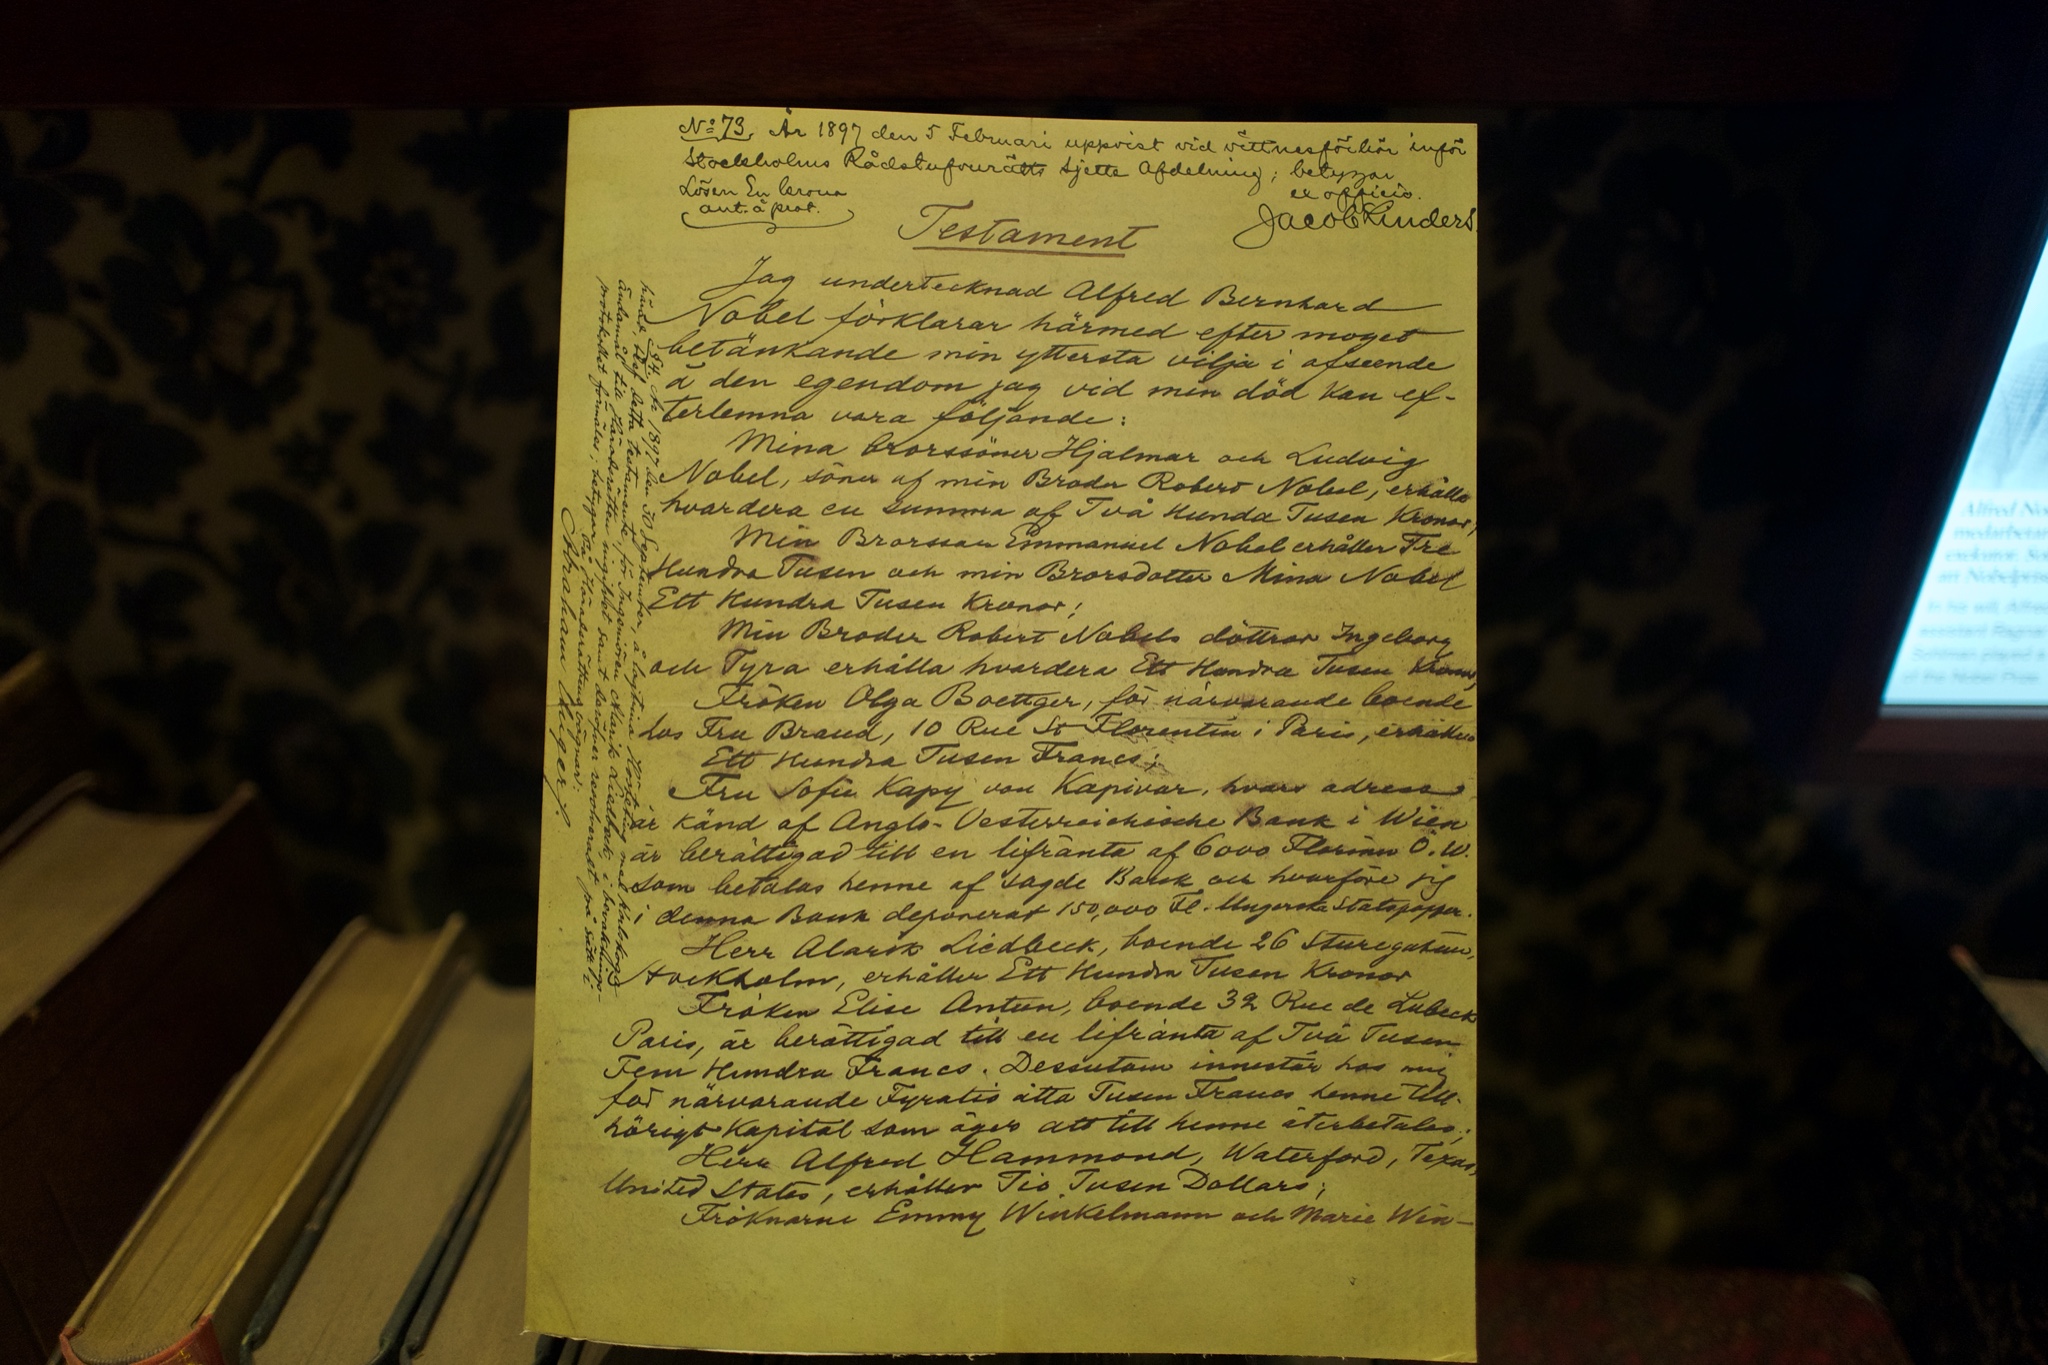 No 73. År 1897 den 5 Februari uppvist vid vittnesförhör inför
Stockholms Rådstufvurätts sjette Afdelning; betygar
Lösen En krona
ex officio.
ant. å prot.
Jacob Linders
Testament
Jag undertecknad Alfred Bernhard
Nobel förklarar härmed efter moget
betänkande min yttersta vilja i afseende
å den egendom jag vid min död kan ef-
terlemna vara följande:
Mina brorssöner Hjalmar och Ludvig
Nobel, söner af min Broder Robert Nobel, erhålla
hvardera en summa af Två Hunda Tusen Kronor;
Min Brorsson Emmanuel Nobel erhåller Tre
Hundra Tusen och min Brorsdotter Mina Nobel
Ett Hundra Tusen Kronor;
Min Broder Robert Nobels döttrar Ingeborg
och Tyra erhålla hvardera Ett Hundra Tusen Kronor;
Fröken Olga Boettger, för närvarande boende
hos Fru Brand, 10 Rue St Florentin i Paris, erhåller
Ett Hundra Tusen Francs;
Fru Sofie Kapy von Kapivar, hvars adress
är känd af Anglo-Oesterreichische Bank i Wien
är berättigad till en lifränta af 6000 Florins Ö.W.
som betalas henne af sagde Bank och hvarföre jag
i denna Bank deponerat 150,000 Fl. Ungerska Statspapper.
Herr Alarik Liedbeck, boende 26 Sturegatan,
Stockholm, erhåller Ett Hundra Tusen Kronor
Fröken Elise Antun, boende 32 Rue de Lubeck
Paris, är berättigad till en lifränta af Två Tusen
Fem Hundra Francs. Dessutom innestår hos mig
för närvarande Fyratio åtta Tusen Francs henne till-
hörigt Kapital som äges att till henne återbetalas;
Herr Alfred Hammond, Waterford, Texas,
United States, erhåller Tio Tusen Dollars;
Fröknarne Emmy Winkelmann och Marie Win-
År 1897 den 30 September, å lagtima Hösteting med Karlskoga
härad, blef detta testamente, för Ingeniören Alarik Liedbeck, i bevaknings-
ändamål till Häradsrätten ingifvet samt deröfver resolverat på sätt
protokollet förmäler; betygar
På Häradsrättens vägnar:
Abraham Unger
Alfred No
medarbeta